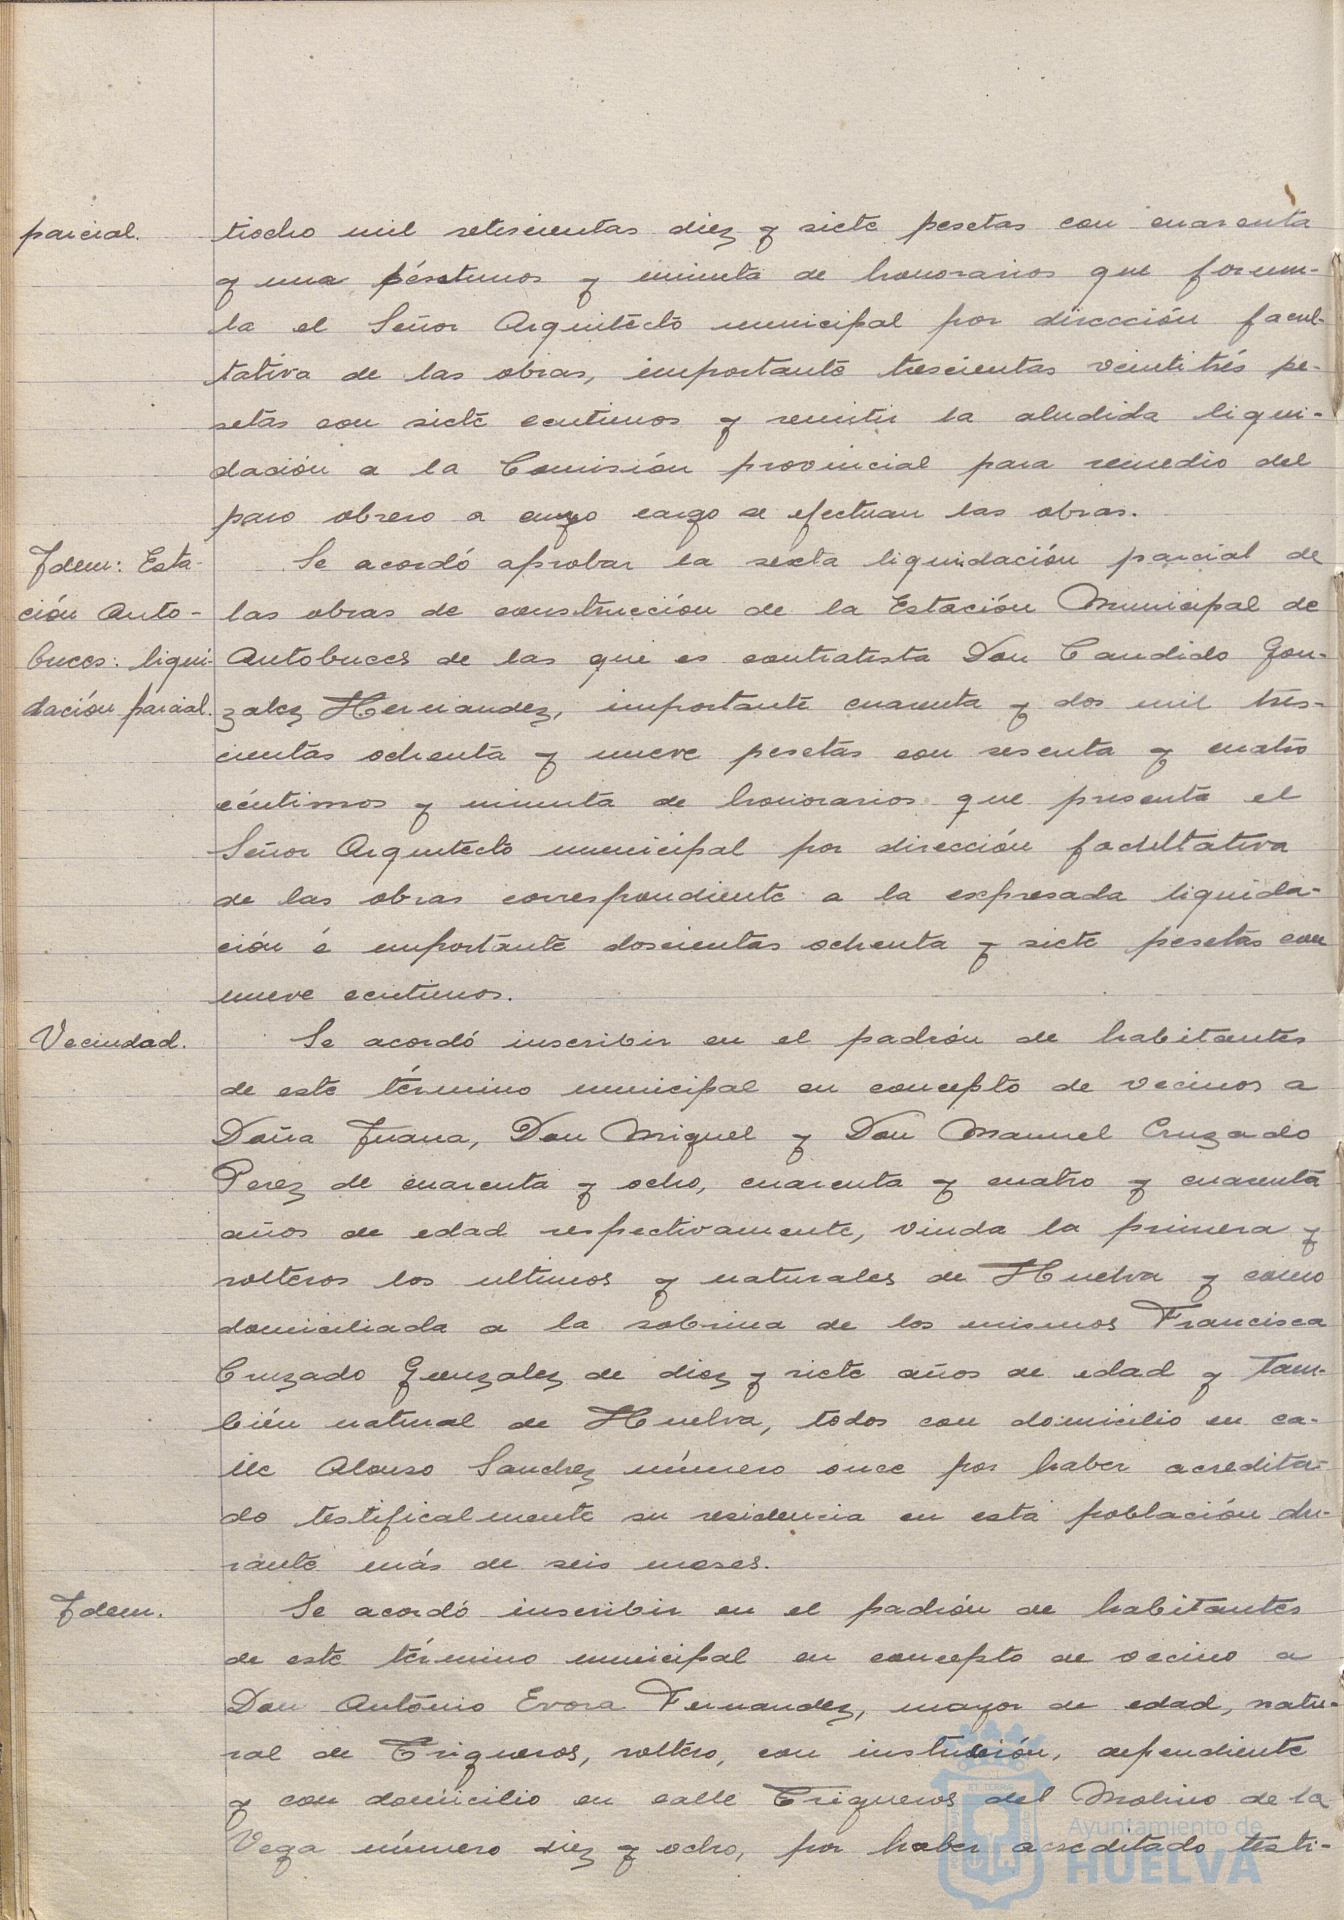 parcial.
tiocho mil setescientas diez y siete pesetas con cuarenta
y una céntimos y minuta de honorarios que formu-
la el Señor Arquitecto municipal por dirección facul-
tativa de las obras, importante trescientas veintitrés pe-
setas con siete centimos y remitir la aludida liqui-
dación a la Comisión provincial para remedio del
paro obrero a cuyo cargo se efectuan las obras.
Idem: Esta-
ción Auto-
buces: liqui-
dación parcial.
Se acordó aprobar la sexta liquidación parcial de
las obras de construcción de la Estación Municipal de
Autobuces de las que es contratista Don Candido Gon-
zalez Hernandez, importante cuarenta y dos mil tres-
cientas ochenta y nueve pesetas con sesenta y cuatro
céntimos y minuta de honorarios que presenta el
Señor Arquitecto municipal por dirección facultativa
de las obras correspondiente a la expresada liquida-
ción é importante doscientas ochenta y siete pesetas con
nueve centimos.
Vecindad.
Se acordó inscribir en el padrón de habitantes
de este término municipal en concepto de vecinos a
Doña Juana, Don Miguel y Don Manuel Cruzado
Perez de cuarenta y ocho, cuarenta y cuatro y cuarenta
años de edad respectivamente, viuda la primera y
solteros los ultimos y naturales de Huelva y como
domiciliada a la sobrina de los mismos Francisca
Cruzado Gonzalez de diez y siete años de edad y tam-
bién natural de Huelva, todos con domicilio en ca-
lle Alonso Sanchez número once por haber acredita-
do testificalmente su residencia en esta población du-
rante más de seis meses.
Idem.
Se acordó inscribir en el padrón de habitantes
de este término municipal en concepto de vecino a
Don António Evora Fernandez, mayor de edad, natu-
ral de Trigueros, soltero, con instrucción, dependiente
y con domicilio en calle Trigueros del Molino de la
Vega número diez y ocho, por haber acreditado testi-
Ayuntamiento de
HUELVA